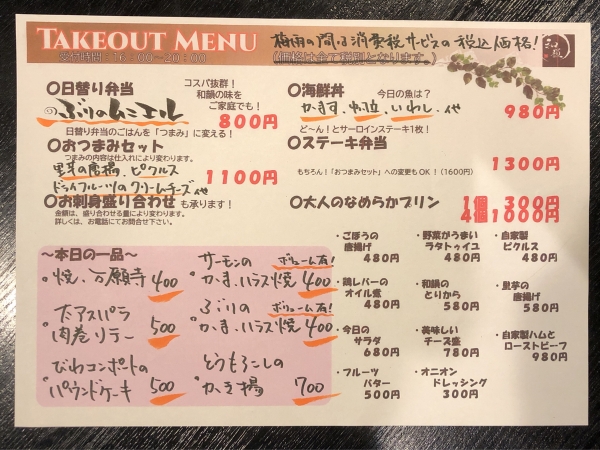 TAKEOUT MENU
受付時間:16:00～20:00
梅雨の間は消費税サービスの税込価格!
(価格は全て税別となります。)
○日替り弁当
コスパ抜群!
和韻の味を
ご家庭でも!
ぶりのムニエル
800円
日替り弁当のごはんを「つまみ」に変える!
○おつまみセット
つまみの内容は仕入れにより変わります。
里芋の唐揚、ピクルス
ドライフルーツのクリームチーズ 他
1100円
○お刺身盛り合わせも承ります!
金額は、盛り合わせる量により変わります。
詳しくは、お電話にてお問合せ下さい。
○海鮮丼
今日の魚は?
かます、いわし、他
980円
ど～ん!とサーロインステーキ1枚!
○ステーキ弁当
1300円
もちろん!「おつまみセット」への変更もOK!(1600円)
○大人のなめらかプリン
1個 300円
4個1000円
～本日の一品～
・焼、万願寺 400
・下アスパラ
肉巻リテー 500
・びわコンポートの
パウンドケーキ 500
・サーモンの ボリューム有!
かま、ハラス焼 400
・ぶりの ボリューム有!
かま、ハラス焼 400
・とうもろこしの
かき揚 700
・ごぼうの
唐揚げ
480円
・野菜がうまい
ラタトゥイユ
480円
・自家製
ピクルス
480円
・鶏レバーの
オイル煮
480円
・和韻の
とりから
580円
・里芋の
唐揚げ
580円
・今日の
サラダ
680円
・美味しい
チーズ盛
780円
・自家製ハムと
ローストビーフ
980円
・フルーツ
バター
500円
・オニオン
ドレッシング
300円